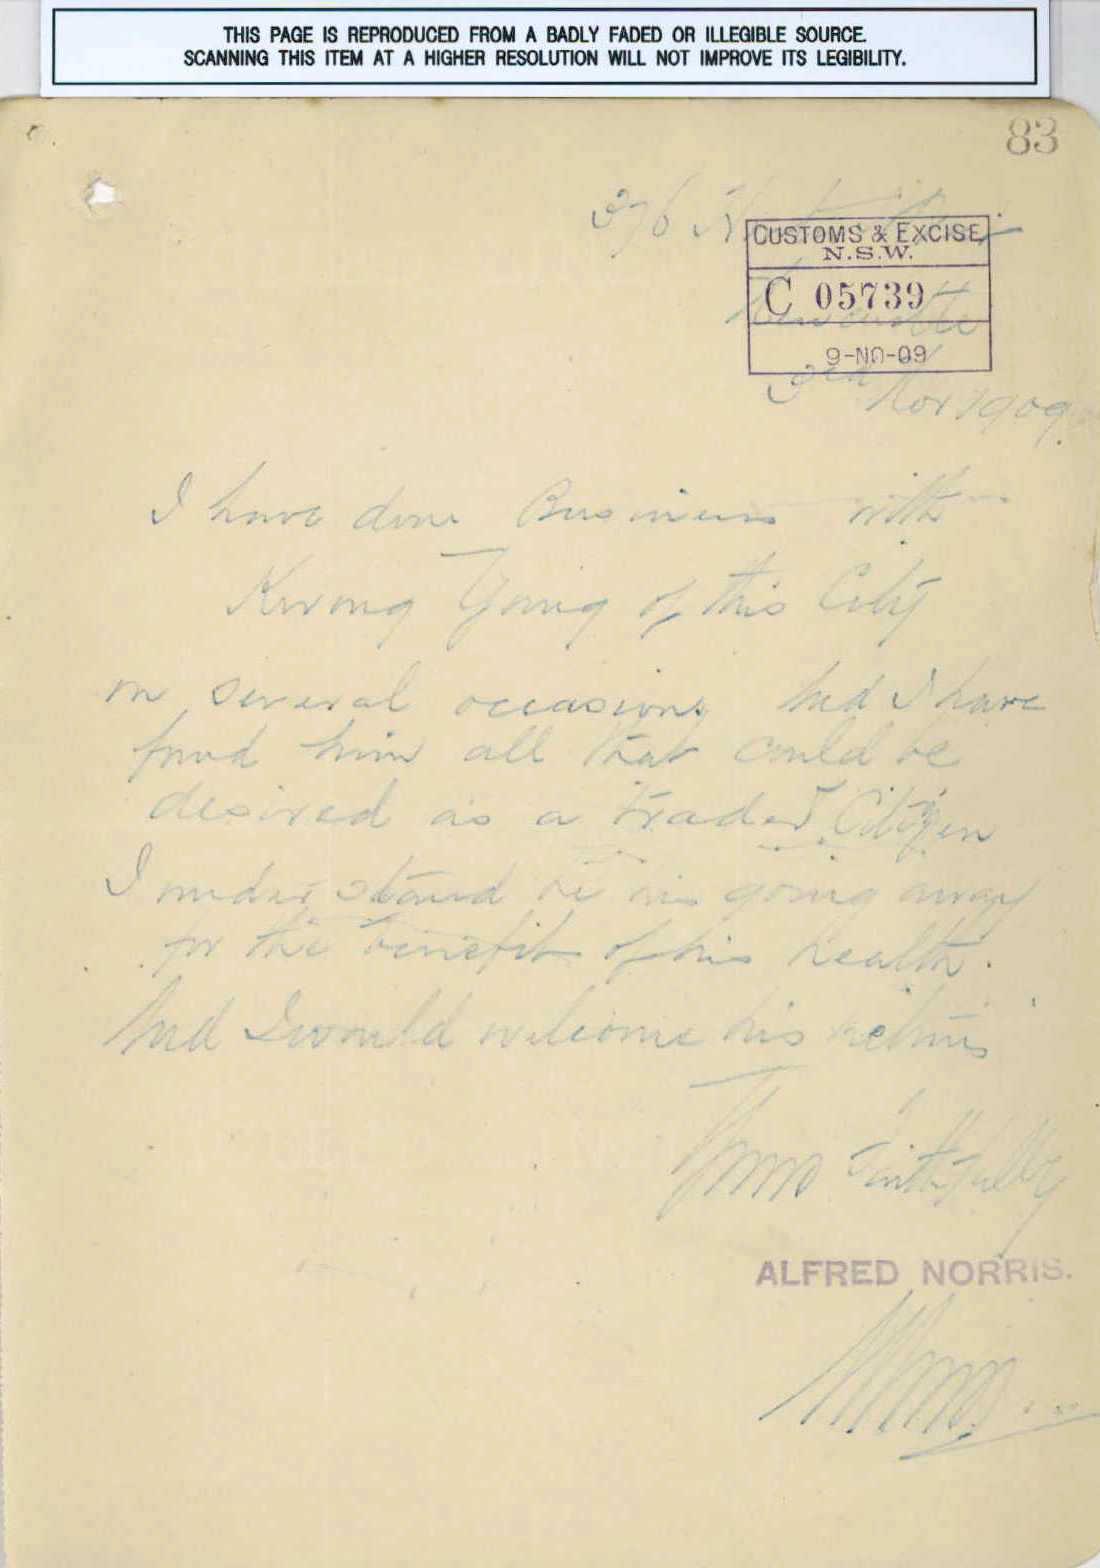 THIS PAGE IS REPRODUCED FROM A BADLY FADED OR ILLEGIBLE SOURCE.
SCANNING THIS ITEM AT A HIGHER RESOLUTION WILL NOT IMPROVE ITS LEGIBILITY.
83
376
CUSTOMS & EXCISE
N.S.W.
C 05739
Newcastle
9-NO-09
3rd Nov 1909.
I have done Business with
Kwong Young of this City
on several occasions And I have
found him all that could be
desired as a trader & Citizen
I understand he is going away
for the benefit of his health.
And I would welcome his return
Yours Faithfully
ALFRED NORRIS.